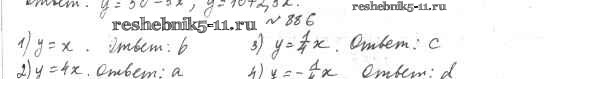 Ответ: y = 50 - 5x, y = 10 + 2,5x.
reshebnik5-11.ru
reshebnik5-11.ru
№ 886
1) y = x. Ответ: b 3) y = 1/4 x. Ответ: c
2) y = 4x. Ответ: a 4) y = -1/4 x Ответ: d